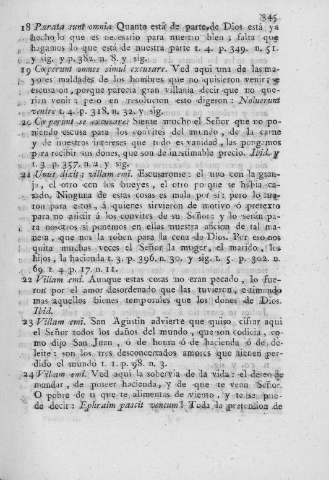 345
18 Parata sunt omnia Quanto está de parte de Dios está ya
hecho lo que es necesario para nuestro bien; falta que
hagamos lo que está de nuestra parte t. 4. p. 349. n. 51.
y sig. y p. 382. n. 8. y sig.
19 Cœperunt omnes simul excusare. Ved aqui una de las ma-
yores maldades de los hombres que no quisieron venir; se
escusaron, porque parecia gran villania decir que no que-
rian venir; pero en resolucion esto digeron: Noluerunt
venire t. 4. p. 318. n. 32. y sig.
20 Cœperunt se excusare: Siente mucho el Señor que no po-
niendo escusa para los convites del mundo, de la carne
y de nuestros intereses que todo es vanidad, las pongamos
para recibir sus dones, que son de inestimable precio. Ibid. y
t. 3. p. 357. n. 2. y sig.
21 Unus dicit; villam emi. Escusaronse: el uno con la gran-
ja, el otro con los bueyes, el otro porque se habia ca-
sado. Ninguna de estas cosas es mala por si; pero lo fue-
ron para estos, á quienes sirvieron de motivo ó pretexto
para no asistir á los convites de su Señor; y lo serán pa-
ra nosotros si ponemos en ellas nuestra aficion de tal ma-
nera, que nos la roben para la cena de Dios. Por eso nos
quita muchas veces el Señor la muger, el marido, los
hijos, la hacienda t. 3. p. 396. n. 30. y sig. t. 5. p. 302. n.
69. t. 4. p. 17. n. 11.
22 Villam emi. Aunque estas cosas no eran pecado, lo fue-
ron por el amor desordenado que las tuvieron, estimando
mas aquellos bienes temporales que los dones de Dios.
Ibid.
23 Villam emi. San Agustin advierte que quiso cifrar aqui
el Señor todos los daños del mundo, que son codicia, co-
mo dijo San Juan, ó de honra ó de hacienda ó de de-
leite: son los tres desconcertados amores que tienen per-
dido el mundo t. 1. p. 98. n. 3.
24 Villam emi. Ved aqui la sobervia de la vida: el deseo de
mandar, de poseer hacienda, y de que te vean Señor.
O pobre de ti que te alimentas de viento, y te se pue-
de decir: Ephraim pascit ventum! Toda la pretension de